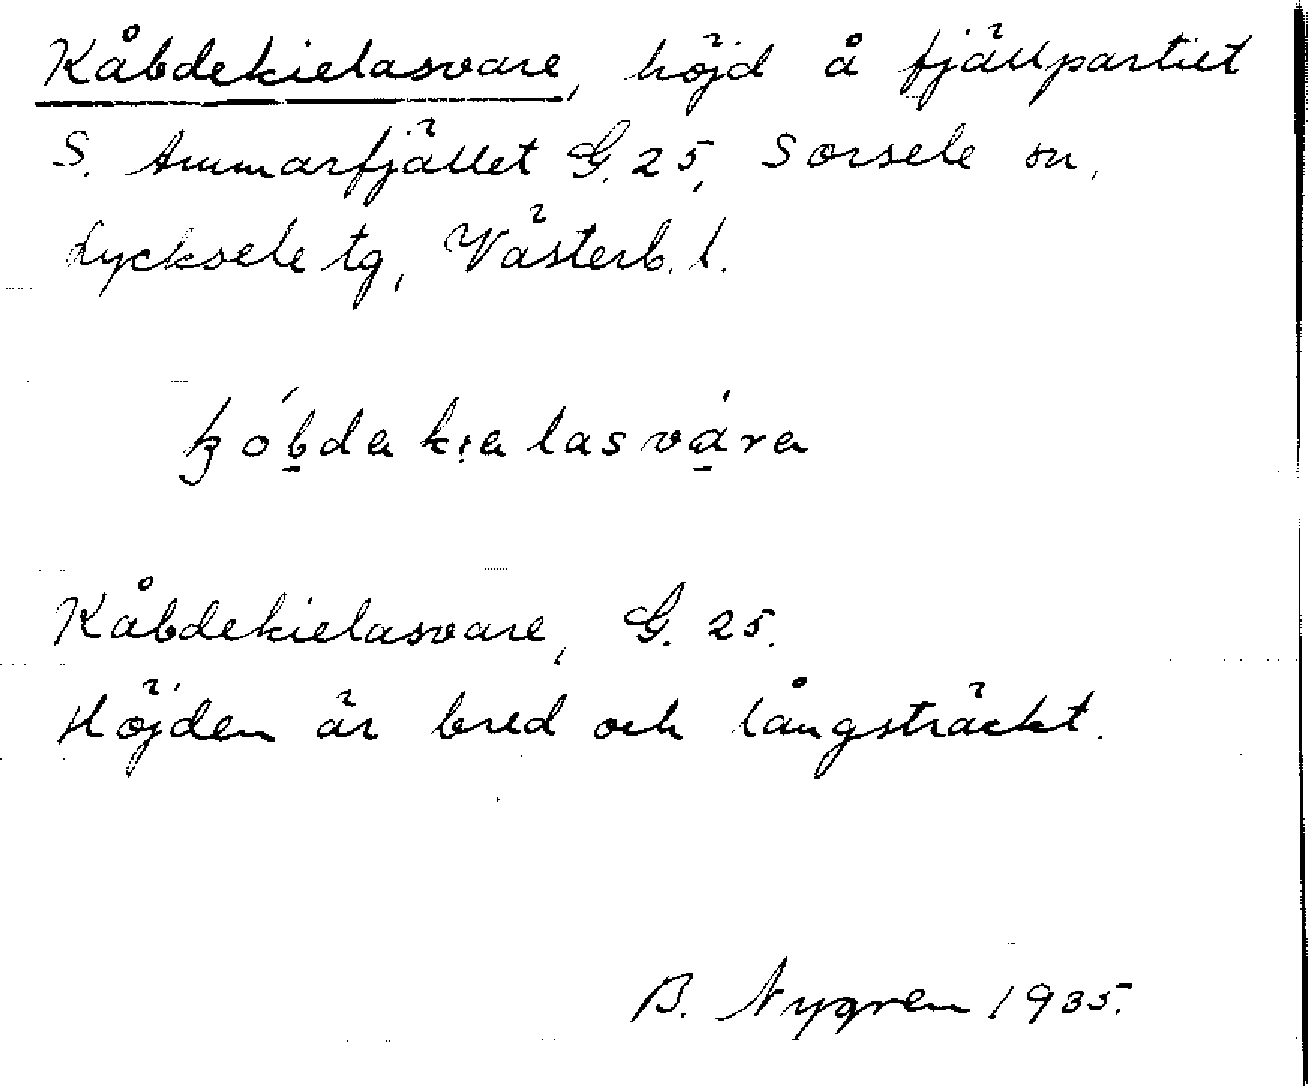 Kåbdekielasvare, höjd å fjällpartiet
S. Ammarfjället G. 25, Sorsele sn,
Lycksele tg, Västerb. l.
kóbdakielasvárɐ
Kåbdekielasvare, G. 25.
Höjden är bred och långsträckt.
B. Nygren 1935.